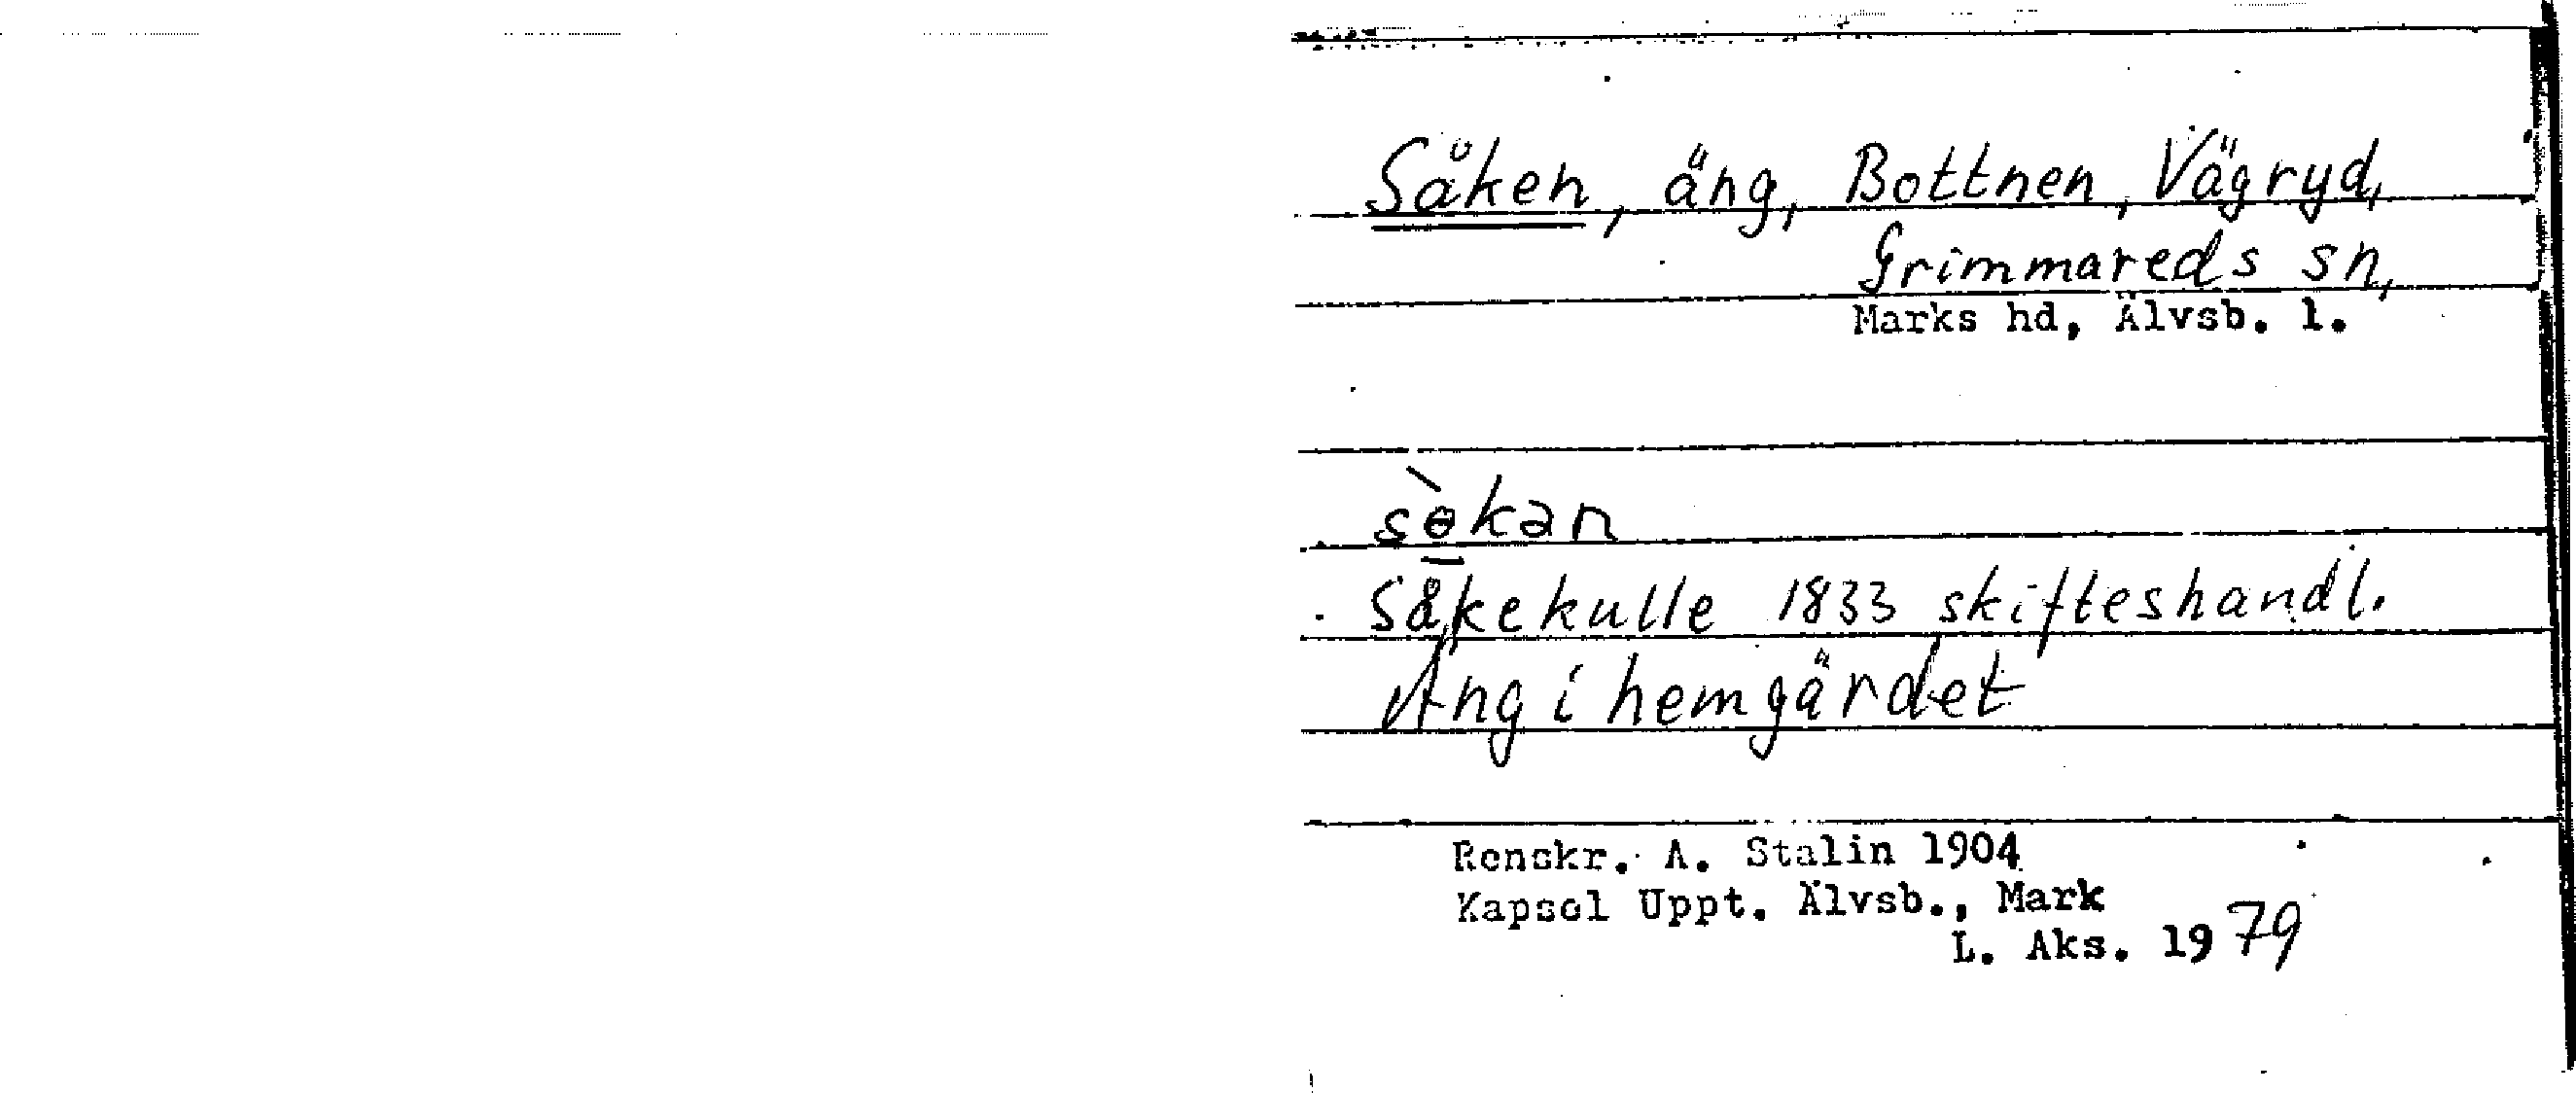 Såken, äng, Bottnen, Vägryd,
Grimmareds sn,
Marks hd, Älvsb. l.
sɵ̀kan
Såkekulle 1833 skifteshandl.
Äng i hemgärdet
Renskr. A. Stalin 1904
Kapsel Uppt. Älvsb., Mark
L. Aks. 1979